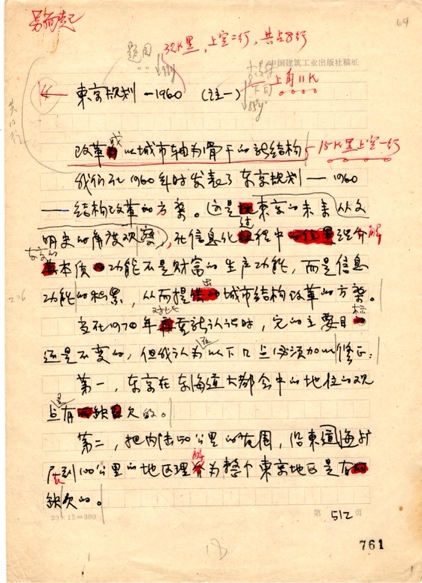 64
题目
32K黑，上空二行，共占8行
中国建筑工业出版社稿纸
東京规划—1960 （注一）
上角11K
改革成以城市轴为骨干的新结构
15K黑上空一行
我们在1960年时发表了东京规划——1960
——结构改革的方案。这是東京的未来从文
明史的角度观察，在信息化过程中理解
东京的本使功能不是财富的生产功能，而是信息
功能的积累，从而提出的城市结构改革的方案。
在1970年重新认识时，它的主要目标
还是不变的，但我认为以下几点必须加以修正：
第一，东京在东海道大都会中的地位的观
点是有缺欠的。
第二，把内陆50公里的范围，沿東海
展到100公里的地区理解为整个東京地区是有
缺欠的。
20×15=300
第 512 页
761